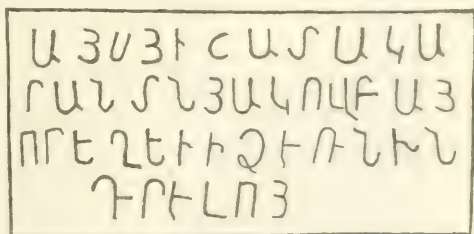 ԱՅՍՅԻՇԱՏԱԿԱ
ՐԱՆՏՆՅԱԿՈՎԲԱՅ
ՈՐԵՂԵՒԻՁԻՌՆԻՆ
ԴՐԻԼՈՅ